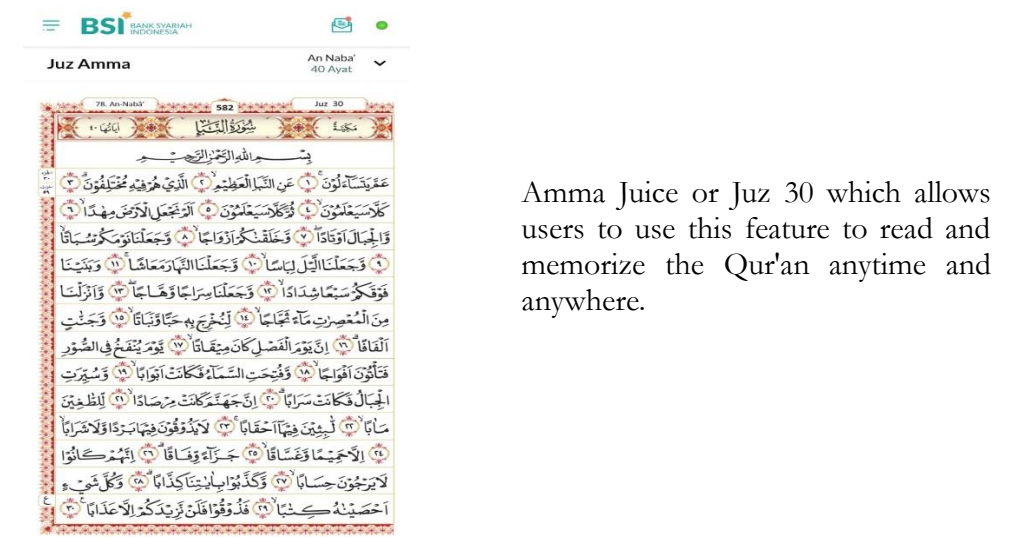 BSI BANK SYARIAH
INDONESIA
Juz Amma
An Naba'
40 Ayat
78. An-Nabā'
582
Juz 30
اٰيَاتُهَا ٤٠
سُوْرَةُ النَّبَإِ
مَكِّيَّةٌ
بِسْمِ اللّٰهِ الرَّحْمٰنِ الرَّحِيْمِ
عَمَّ يَتَسَاۤءَلُوْنَۚ ١ عَنِ النَّبَاِ الْعَظِيْمِۙ ٢ الَّذِيْ هُمْ فِيْهِ مُخْتَلِفُوْنَۗ ٣
كَلَّا سَيَعْلَمُوْنَۙ ٤ ثُمَّ كَلَّا سَيَعْلَمُوْنَ ٥ اَلَمْ نَجْعَلِ الْاَرْضَ مِهٰدًاۙ ٦
وَّالْجِبَالَ اَوْتَادًاۖ ٧ وَّخَلَقْنٰكُمْ اَزْوَاجًاۙ ٨ وَّجَعَلْنَا نَوْمَكُمْ سُبَاتًاۙ
٩ وَّجَعَلْنَا الَّيْلَ لِبَاسًاۙ ١٠ وَّجَعَلْنَا النَّهَارَ مَعَاشًاۚ ١١ وَبَنَيْنَا
فَوْقَكُمْ سَبْعًا شِدَادًاۙ ١٢ وَّجَعَلْنَا سِرَاجًا وَّهَّاجًاۖ ١٣ وَّاَنْزَلْنَا
مِنَ الْمُعْصِرٰتِ مَاۤءً ثَجَّاجًاۙ ١٤ لِّنُخْرِجَ بِهٖ حَبًّا وَّنَبَاتًاۙ ١٥ وَّجَنّٰتٍ
اَلْفَافًاۗ ١٦ اِنَّ يَوْمَ الْفَصْلِ كَانَ مِيْقَاتًاۙ ١٧ يَّوْمَ يُنْفَخُ فِى الصُّوْرِ
فَتَأْتُوْنَ اَفْوَاجًاۙ ١٨ وَّفُتِحَتِ السَّمَاۤءُ فَكَانَتْ اَبْوَابًاۙ ١٩ وَّسُيِّرَتِ
الْجِبَالُ فَكَانَتْ سَرَابًاۗ ٢٠ اِنَّ جَهَنَّمَ كَانَتْ مِرْصَادًاۙ ٢١ لِّلطّٰغِيْنَ
مَاٰبًاۙ ٢٢ لّٰبِثِيْنَ فِيْهَآ اَحْقَابًاۚ ٢٣ لَا يَذُوْقُوْنَ فِيْهَا بَرْدًا وَّلَا شَرَابًاۙ
٢٤ اِلَّا حَمِيْمًا وَّغَسَّاقًاۙ ٢٥ جَزَاۤءً وِّفَاقًاۗ ٢٦ اِنَّهُمْ كَانُوْا
لَا يَرْجُوْنَ حِسَابًاۙ ٢٧ وَّكَذَّبُوْا بِاٰيٰتِنَا كِذَّابًاۗ ٢٨ وَكُلَّ شَيْءٍ
اَحْصَيْنٰهُ كِتٰبًاۙ ٢٩ فَذُوْقُوْا فَلَنْ نَّزِيْدَكُمْ اِلَّا عَذَابًاۚ ٣٠
ع
Amma Juice or Juz 30 which allows
users to use this feature to read and
memorize the Qur'an anytime and
anywhere.